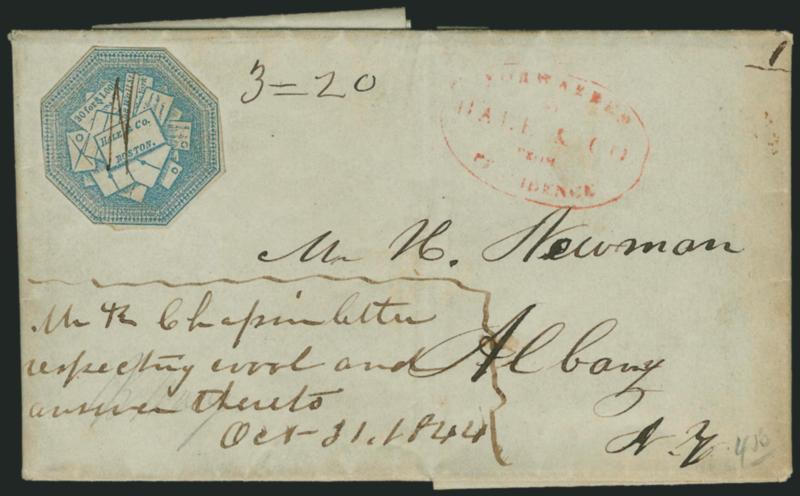 30 for $1.00
HALE & Co.
BOSTON.
3=20
FORWARDED
HALE & CO
FROM
PROVIDENCE
1
Mr H. Newman
Albany
N.Y.
Chapin letter
respecting wool and
answer thereto
Oct 31. 1844